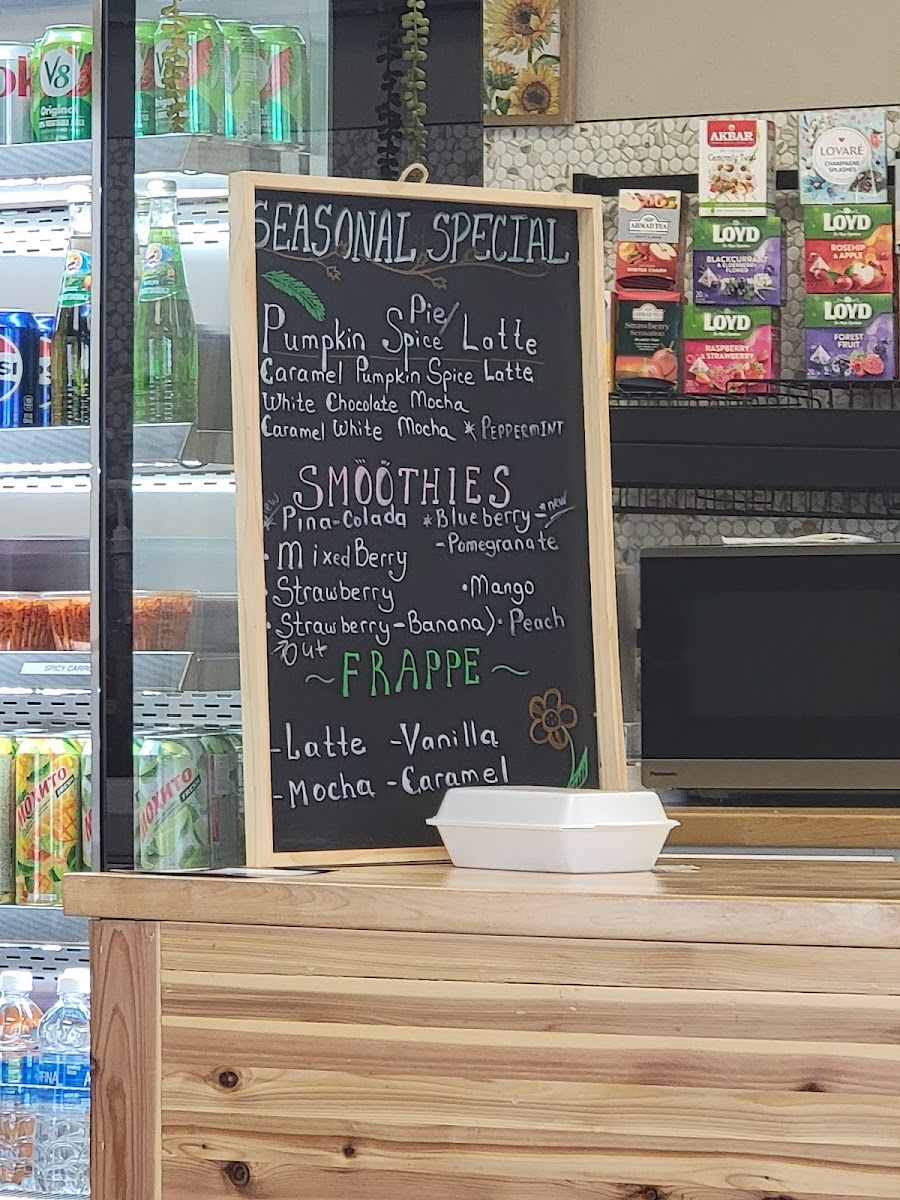 SEASONAL SPECIAL
Pie/
Pumpkin Spice Latte
Caramel Pumpkin Spice Latte
White Chocolate Mocha
Caramel White Mocha *PEPPERMINT
SMOOTHIES
new
* Pina-Colada *Blueberry- new
-Pomegranate
• Mixed Berry
• Strawberry •Mango
• Strawberry-Banana) • Peach
Out
~ FRAPPE ~
-Latte -Vanilla
-Mocha -Caramel
V8
Original
SPICY CARRO
МОХИТО
FRESH
МОХИТО
FINA
A
AKBAR
LOVARÉ
CHAMPAGNE
SPLASHES
AHMAD TEA
WINTER CHARM
LOYD
BLACKCURRANT
& ELDERBERRY
FLOWER
20
LOYD
ROSEHIP
& APPLE
20
AHMAD TEA
Strawberry
Sensation
LOYD
RASPBERRY
& STRAWBERRY
20
LOYD
FOREST
FRUIT
20
SI
Panasonic